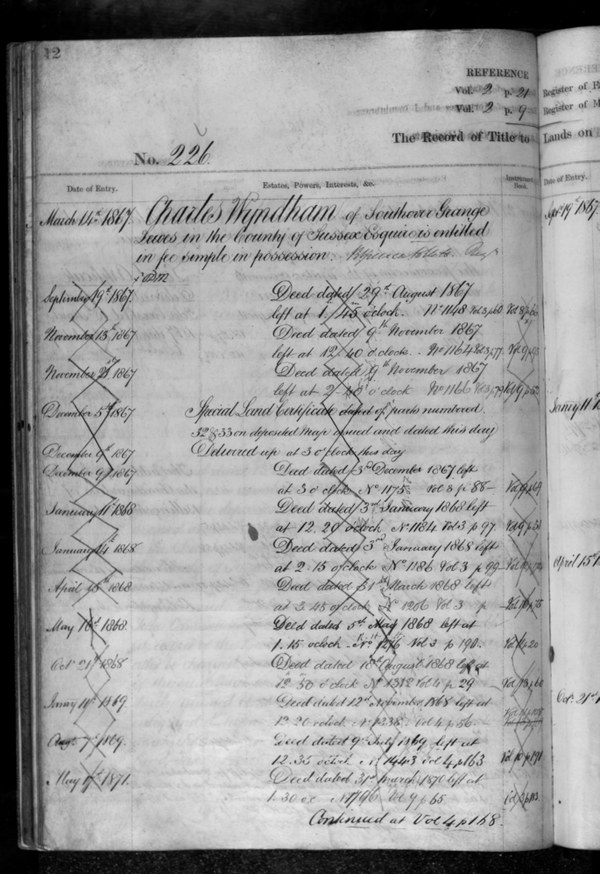 12
REFERENCE
Vol. 2 p. 21
Vol. 2 p. 9
The Record of Title to
No. 226
Date of Entry. Estates, Powers, Interests, &c.
March 14th 1867. Charles Wyndham of Southover Grange
Lewes in the County of Sussex Esquire is entitled
in fee simple in possession.
September 19th 1867. Deed dated 29th August 1867
left at 1.45 o'clock. No 1148 Vol 3 p 60
November 13th 1867 Deed dated 9th November 1867.
left at 12.40 o'clock. No 1164 Vol 3 p 77.
November 1867 Deed dated 9th November 1867
left at 2 o'clock No 1166 Vol 3 p 79
December 5th 1867 Special Land Certificate of parts numbered
52 & 53 on deposited Map issued and dated this day
December 9th 1867 Delivered up at 3 o'clock this day
December 9th 1867 Deed dated 3rd December 1867 left
at 3 o'clock No 1175 Vol 3 p 88
January 11th 1868 Deed dated 3rd January 1868 left
at 12.29 o'clock No 1184 Vol 3 p 97
January 14th 1868 Deed dated 3rd January 1868 left
at 2.15 o'clock No 1186 Vol 3 p 99
April 15th 1868 Deed dated 31st March 1868 left
at 3.45 o'clock No 1206 Vol 3 p
May 16th 1868. Deed dated 5th May 1868 left at
1.15 o'clock No Vol 3 p 190.
Octr 21st 1868 Deed dated 10th August 1868 left at
12.50 o'clock No Vol 4 p 29
Jany 11th 1869. Deed dated 12th November 1868 left at
12.20 o'clock No Vol 4 p 56
Augt 7th 1869. Deed dated 9th July 1869 left at
12.35 o'clock No 1443 Vol 4 p 163
May 1871. Deed dated 31st March 1870 left at
1.30 o'c No 1796 Vol 9 p 65.
Continued at Vol 4 p 168.
Register of
Register of
Lands on
Date of Entry.
Sept 19th 1867.
Jany 11th
April 15th
Oct. 21st